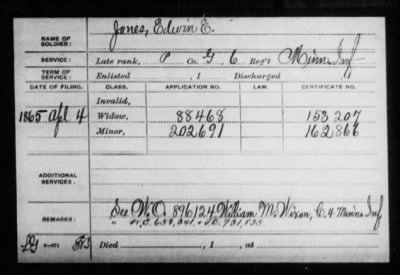 NAME OF SOLDIER: Jones, Edwin E.
SERVICE: Late rank, P Co. G, 6 Reg't Minn. Inf
TERM OF SERVICE: Enlisted , 1 Discharged
DATE OF FILING. CLASS. APPLICATION NO. LAW. CERTIFICATE NO.
Invalid,
1865 Apl 4 Widow, 88468 153207
Minor, 202691 162,866
ADDITIONAL SERVICES.
REMARKS: See W.O. 896124 William M. Wixan, C. 4 Minn Inf,
" W.C. 658,341.
Died , 1 , at